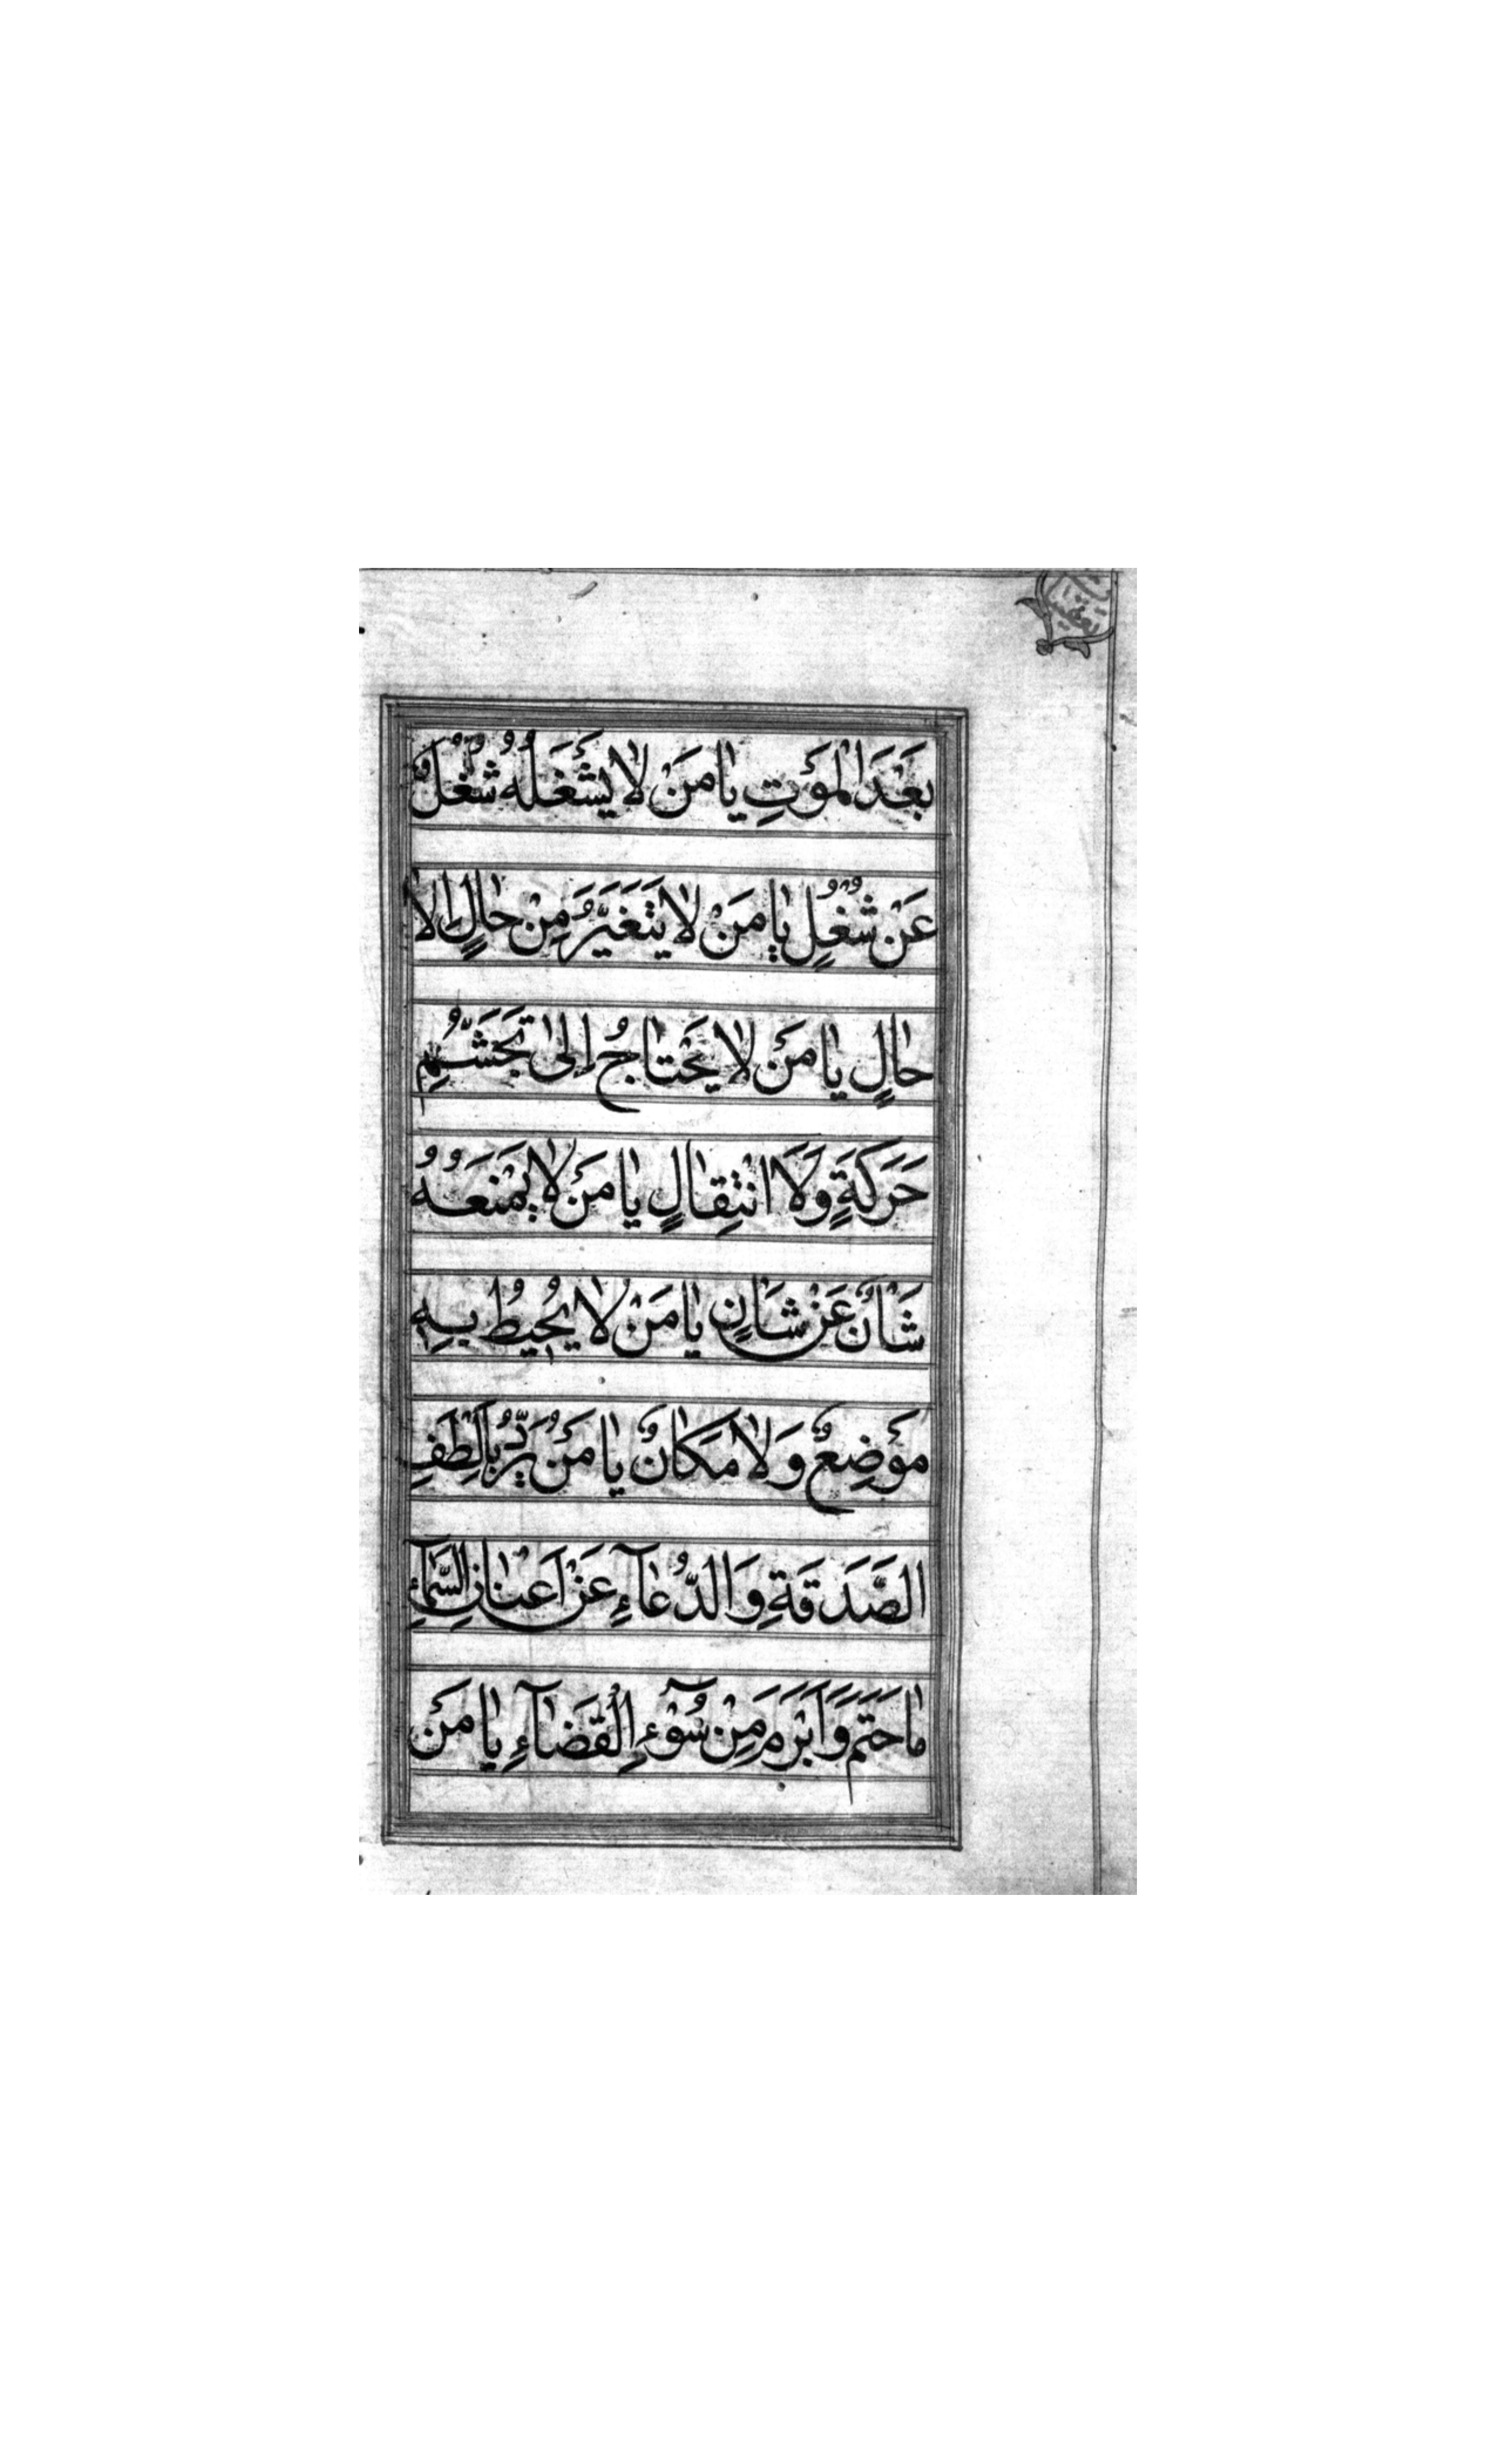 بَعْدَ الْمَوْتِ يَا مَنْ لَا يَشْغَلُهُ شُغُلٌ
عَنْ شُغُلٍ يَا مَنْ لَا يَتَغَيَّرُ مِنْ حَالٍ اِلَا
حَالٍ يَا مَنْ لَا يَحْتَاجُ اِلَىٰ تَجَشُّمِ
حَرَكَةٍ وَلَا انْتِقَالٍ يَا مَنْ لَا يَمْنَعُهُ
شَانٌ عَنْ شَانٍ يَا مَنْ لَا يُحِيطُ بِهِ
مَوْضِعٌ وَلَا مَكَانٌ يَا مَنْ يَرُدُّ بِاَلْطَفِ
الصَّدَقَةِ وَالدُّعَآءِ عَنْ اَعْنَانِ السَّمَآءِ
مَا حَتَمَ وَاَبْرَمَ مِنْ سُوْٓءِ الْقَضَآءِ يَا مَنْ